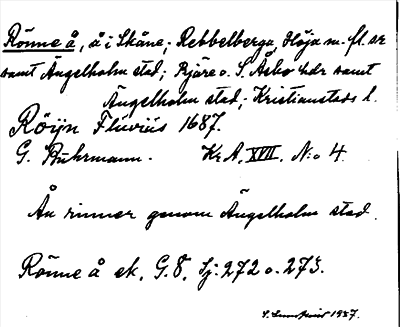 Rönne å, å i Skåne; Rebbelberga, Höja m. fl. sr
samt Ängelholm stad; Bjäre o. S. Åsbo hdr samt
Ängelholm stad; Kristianstads l.
Röijn Fluviús 1687.
G. Buhrmann. Kr A. XVIII. N:o 4.
Ån rinner genom Ängelholm stad.
Rönne å ek. G. 8. Sj: 272 o. 273.
1937.